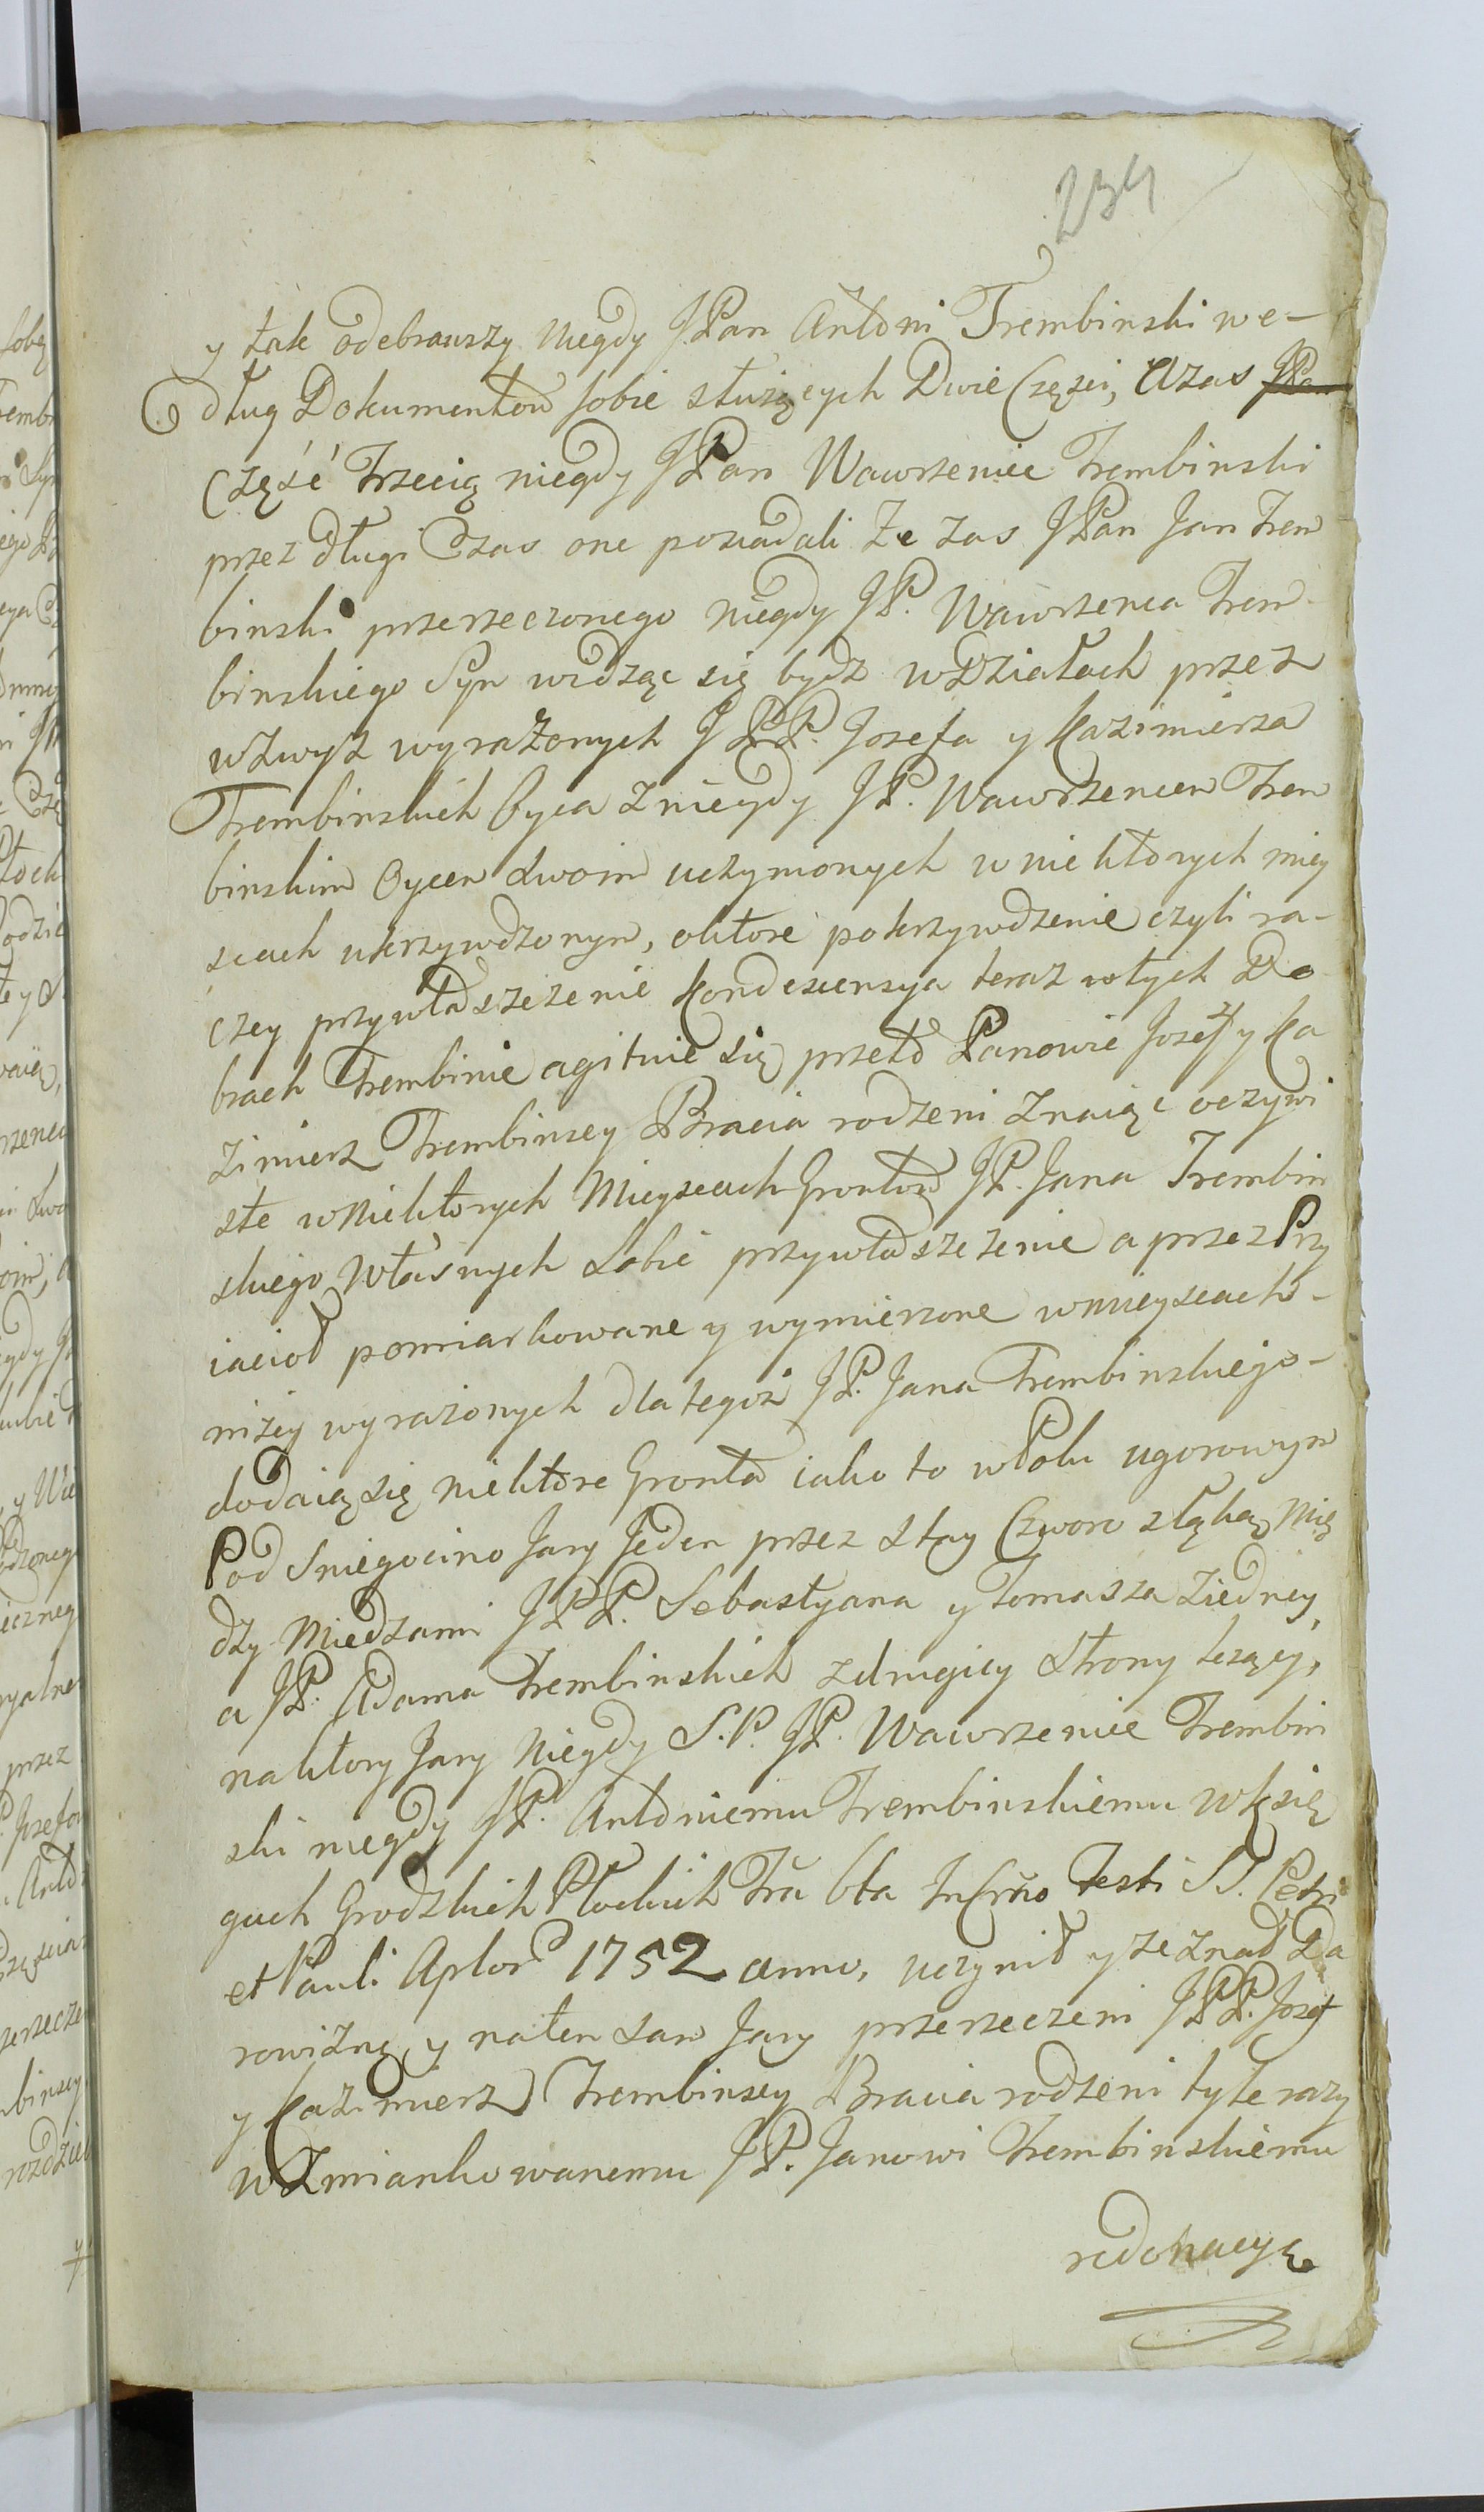 234
y tak odebrawszy niegdy JPan Antoni Trembinski we-
dług Dokumentow sobie służących Dwie Części, Azas JPan
Część Trzecią niegdy JPan Wawrzeniec Trembinski
przez długi Czas one posiadali Ze zas JPan Jan Trem
binski przerzeczonego niegdy JP. Wawrzenca Trem-
binskiego Syn widząc się bydz wDziałach przez
wzwyż wyrażonych JPP. Jozefa y Kazimierza
Trembinskich Oyca zniegdy JP. Wawrzencem Trem
binskim Oycem Swoim uczynionych wniektorych miey
scach ukrzywdzonym, oktore pokrzywdzenie czyli ra-
czey przywłaszczenie Kondescensya teraz wtych Do
brach Trembinie agituie się przeto Panowie Jozef y Ka
zimierz Trembinscy Bracia rodzeni znaiąc oczywi
ste wNiektorych Mieyscach Grontow JP. Jana Trembin
skiego Własnych Sobie przywłaszczenie a przez Przy
iacioł pomiarkowane y wymierzone wmieyscach-
niżey wyrażonych dla tegoż JP. Jana Trembinskiego-
dodaią się niektore Gronta iako to wPolu ugorowym
Pod Sniegocino Jary Jeden przez Stay Czworo złąką Mię
dzy Miedzami JPP. Sebastyana y Tomasza ziedney,
a JP. Adama Trembinskich zdrugiey Strony leżący,
naktory Jary Niegdy S.P. JP. Wawrzeniec Trembin
ski niegdy JP. Antoniemu Trembinskiemu wKsię
gach Grodzkich Płockich Fra 6ta InCrno Festi SS. Petri
et Pauli Aplor 1752 anno, uczynił y zeznał Da
rowiznę, y naten Sam Jary przerzeczeni JPP. Jozef
y Kazimierz Trembinscy Bracia rodzeni tyle razy
wZmiankowanemu JP. Janowi Trembinskiemu
redonacyą